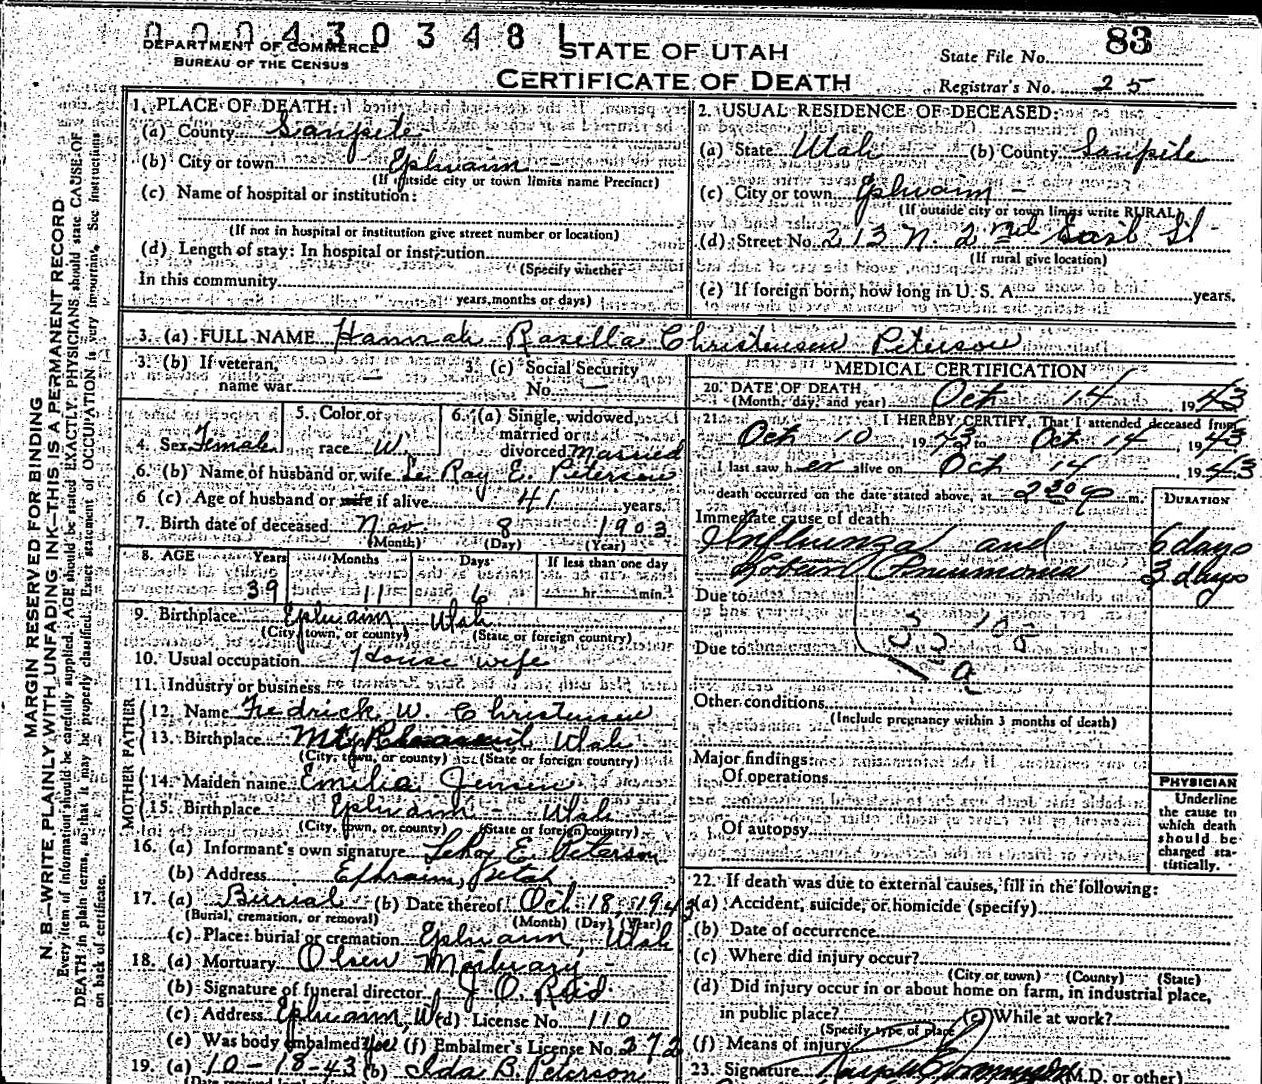 0 0 0 4 3 0 3 4 8 1
DEPARTMENT OF COMMERCE
BUREAU OF THE CENSUS
STATE OF UTAH
CERTIFICATE OF DEATH
State File No. 83
Registrar's No. 25
MARGIN RESERVED FOR BINDING
N. B.—WRITE PLAINLY WITH UNFADING INK—THIS IS A PERMANENT RECORD
Every item of information should be carefully supplied. AGE should be stated EXACTLY. PHYSICIANS should state CAUSE OF
DEATH in plain terms, so that it may be properly classified. Exact statement of OCCUPATION is very important. See instructions
on back of certificate.
1. PLACE OF DEATH:
(a) County Sanpete
(b) City or town Ephraim
(If outside city or town limits name Precinct)
(c) Name of hospital or institution:
(If not in hospital or institution give street number or location)
(d) Length of stay: In hospital or institution
(Specify whether
In this community
years, months or days)
2. USUAL RESIDENCE OF DECEASED:
(a) State Utah (b) County Sanpete
(c) City or town Ephraim
(If outside city or town limits write RURAL)
(d) Street No. 213 N. 2nd East St.
(If rural give location)
(e) If foreign born, how long in U. S. A. years.
3. (a) FULL NAME Hannah Rosella Christensen Peterson
3. (b) If veteran, name war —
3. (c) Social Security No. —
4. Sex Female
5. Color or race W.
6. (a) Single, widowed, married or divorced Married
6. (b) Name of husband or wife Le Roy E. Peterson
6 (c). Age of husband or wife if alive 41 years.
7. Birth date of deceased Nov. 8 1903
(Month) (Day) (Year)
8. AGE Years Months Days If less than one day
39 11 6 hr. min.
9. Birthplace Ephraim, Utah
(City, town, or county) (State or foreign country)
10. Usual occupation House wife
11. Industry or business
FATHER
12. Name Fredrick W. Christensen
13. Birthplace Mt. Pleasant Utah
(City, town, or county) (State or foreign country)
MOTHER
14. Maiden name Emilia Jensen
15. Birthplace Ephraim - Utah
(City, town, or county) (State or foreign country)
16. (a) Informant's own signature LeRoy E. Peterson
(b) Address Ephraim, Utah
17. (a) Burial (b) Date thereof Oct 18 1943
(Burial, cremation, or removal) (Month) (Day) (Year)
(c) Place: burial or cremation Ephraim, Utah
18. (a) Mortuary Olsen Mortuary
(b) Signature of funeral director
(c) Address Ephraim, Ut (d) License No. 110
(e) Was body embalmed? Yes (f) Embalmer's License No. 372
19. (a) 10-18-43 (b) Ida B. Peterson
MEDICAL CERTIFICATION
20. DATE OF DEATH
(Month, day, and year) Oct 14, 1943
21. I HEREBY CERTIFY, That I attended deceased from
Oct 10, 1943 to Oct 14, 1943
I last saw her alive on Oct 14 1943
death occurred on the date stated above, at 2 30 P m.
DURATION
Immediate cause of death
Influenza and 6 days
Lobar Pneumonia 3 days
Due to
Due to
33 a
Other conditions
(Include pregnancy within 3 months of death)
Major findings:
Of operations
Of autopsy
PHYSICIAN
Underline
the cause to
which death
should be
charged sta-
tistically.
22. If death was due to external causes, fill in the following:
(a) Accident, suicide, or homicide (specify)
(b) Date of occurrence
(c) Where did injury occur?
(City or town) (County) (State)
(d) Did injury occur in or about home on farm, in industrial place,
in public place?
(Specify type of place) (e) While at work?
(f) Means of injury
23. Signature M.D. or other)